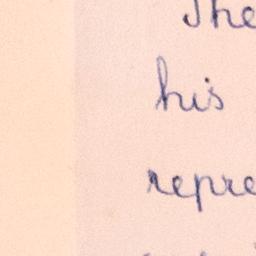 The
his
repre